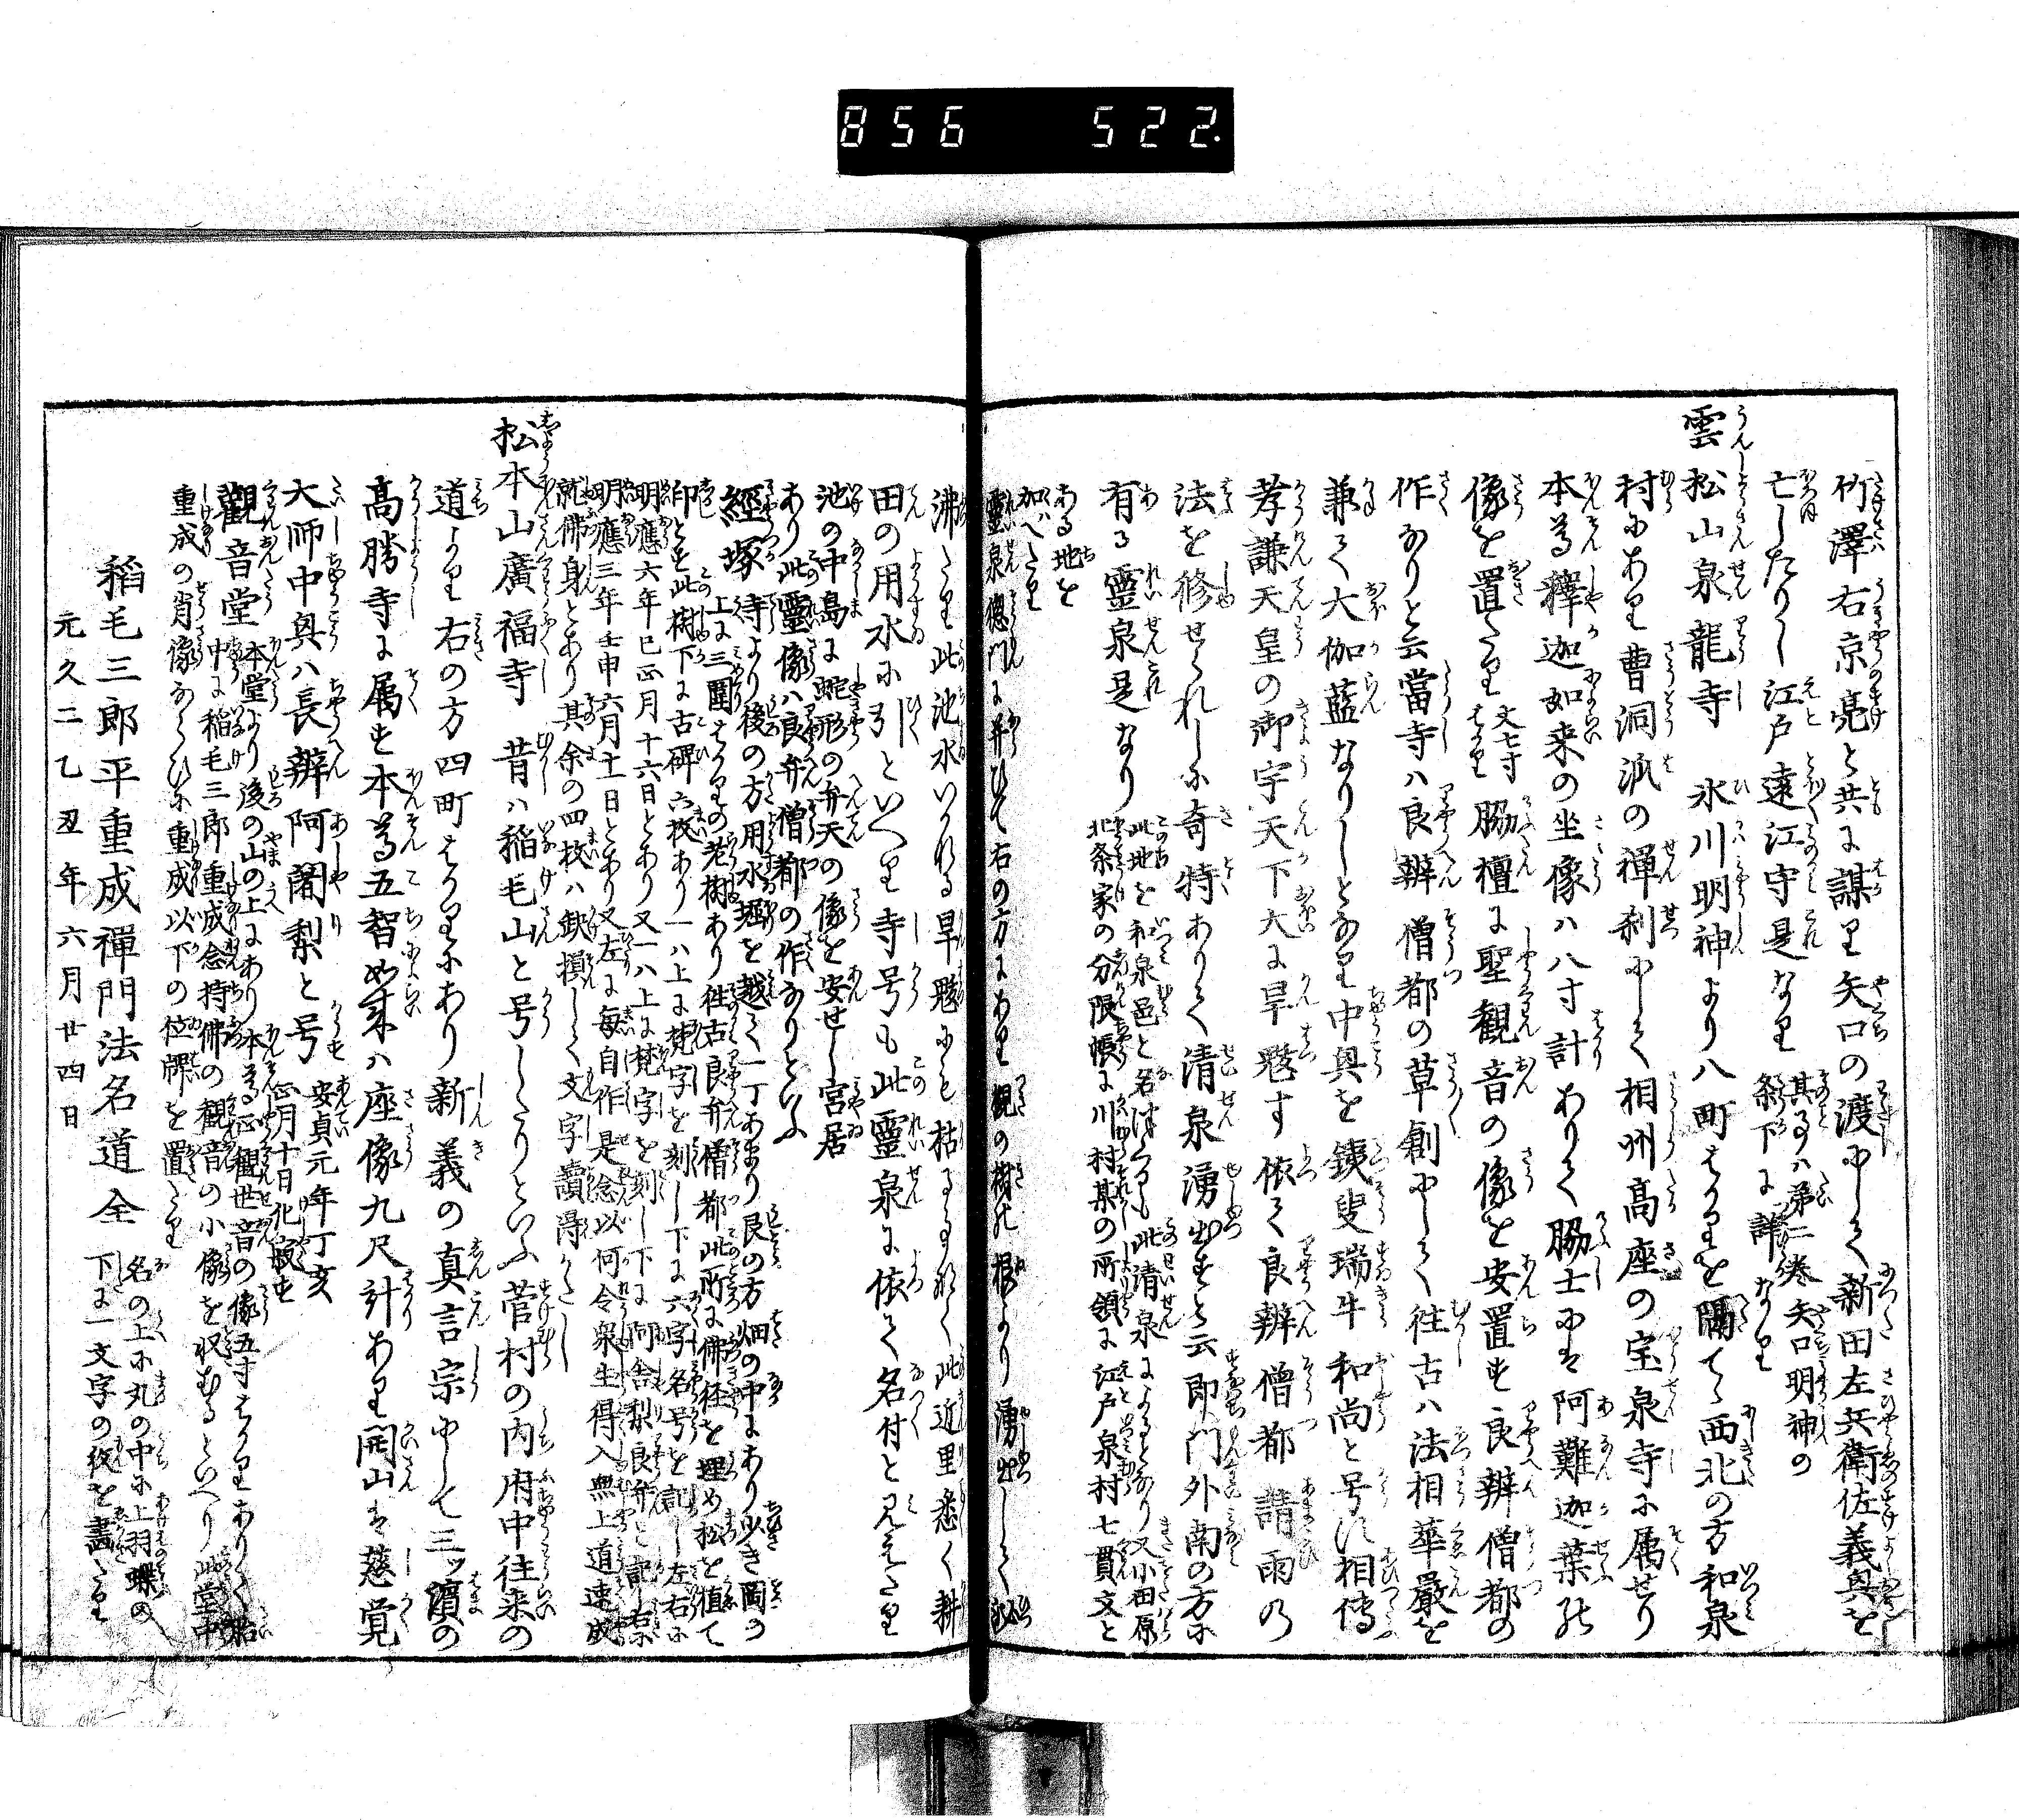 856 522.
竹澤右京亮と共に謀り矢口の渡にして新田左兵衛佐義興を
亡したりし江戸遠江守是なり 其事ハ第二巻矢口明神の
条下に詳なり
雲松山泉龍寺 氷川明神より八町はかりを隔てゝ西北の方和泉
村にあり曹洞派の禅刹にして相州高座の宝泉寺に属せり
本尊釋迦如来の坐像ハ八寸計ありて脇士にハ阿難迦葉の
像を置たり 丈七寸はかり 脇檀に聖観音の像を安置す良辨僧都の
作なりと云當寺ハ良辨僧都の草創にして往古ハ法相華嚴を
兼て大伽藍なりしとなり中興を鐵叟瑞牛和尚と号す相傳
孝謙天皇の御宇天下大に旱魃す依て良辨僧都請雨の
法を修せられしに奇特ありて清泉湧出すと云即門外南の方に
有る靈泉是なり 此地を和泉邑と名つくるも此清泉によるとなり又小田原
北条家の分限帳に川村某の所領に江戸泉村七貫文と
ある地を
加へたり
靈泉 惣門に并ひて右の方にあり 槻の樹の根より湧出して
沸たり此池水いかなる旱魃にも枯るゝ事なく此近里悉く耕
田の用水に引といへり寺号も此靈泉に依て名付と見えたり
池の中島に蛇形の弁天の像を安せし宮居
あり此靈像ハ良弁僧都の作なりといふ
經塚 寺より後の方用水堀を越て一丁あまり艮の方畑の中にあり少き岡の
上に三圍はかりの老樹あり往古良弁僧都此所に佛経を埋め松を植て
印とす此樹下に古碑六枚あり一ハ上に梵字を刻し下に六字名号を記し左右に
明應六年巳正月十六日とあり又一ハ上に梵字を刻し下に阿舎梨良弁と記し右に
明應三年壬申六月十一日とあり又左に毎自作是念以何令衆生得入無上道速成
就佛身とあり其余の四枚ハ缺損して文字讀得かたし
松本山廣福寺 昔ハ稲毛山と号したりといふ菅村の内府中往来の
道より右の方四町はかりにあり新義の真言宗にして三ッ濱の
高勝寺に属す本尊五智如来ハ座像九尺計あり開山を慈覚
大師中興ハ長辨阿闍梨と号 安貞元年丁亥
正月十日化寂す
觀音堂 本堂より後の山の上にあり本尊正觀世音の像五寸はかりありて胎
中に稲毛三郎重成念持佛の観音の小像を収むるといへり此堂中
重成の肖像ならひに重成以下の位牌を置たり
稲毛三郎平重成禪門法名道全 名の上に丸の中に上羽蝶の
下に一文字の紋を畫たり
元久二乙丑年六月廿四日